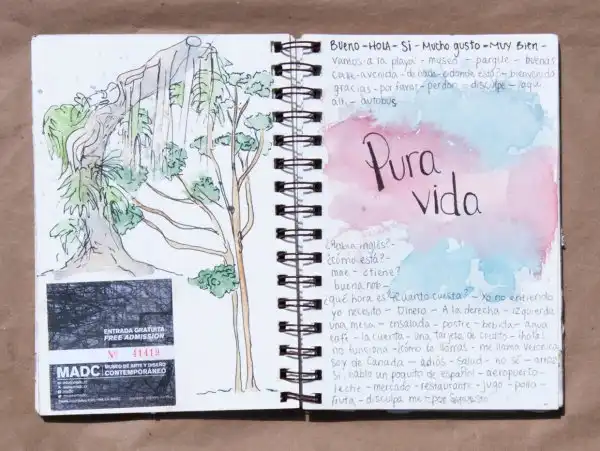 ENTRADA GRATUITA
FREE ADMISSION
Nº 41419
MADC
MUSEO DE ARTE Y DISEÑO
CONTEMPORÁNEO
BUENO - HOLA - Si - Mucho gusto - MUY Bien -
vamos a la playa - museo - parque - buenas
calle - avenida - de nada - dónde está? - bienvenido
gracias - por favor - perdón - disculpe - aquí
allí - autobus
Pura
vida
¿Habla inglés? -
¿cómo está? -
mae - ¿tiene?
buena
¿qué hora es? ¿cuánto cuesta? - Yo no entiendo
yo necesito - Dinero - A la derecha - izquierda
una mesa - ensalada - postre - bebida - agua
café - la cuenta - una tarjeta de crédito - ¡hola!
no funciona - ¿cómo te llamas - me llamo Verónica
soy de Canadá - adiós - salud - no sé - arroz
Si, hablo un poquito de español - aeropuerto -
leche - mercado - restaurante - jugo - pollo -
fruta - disculpa me - por supuesto